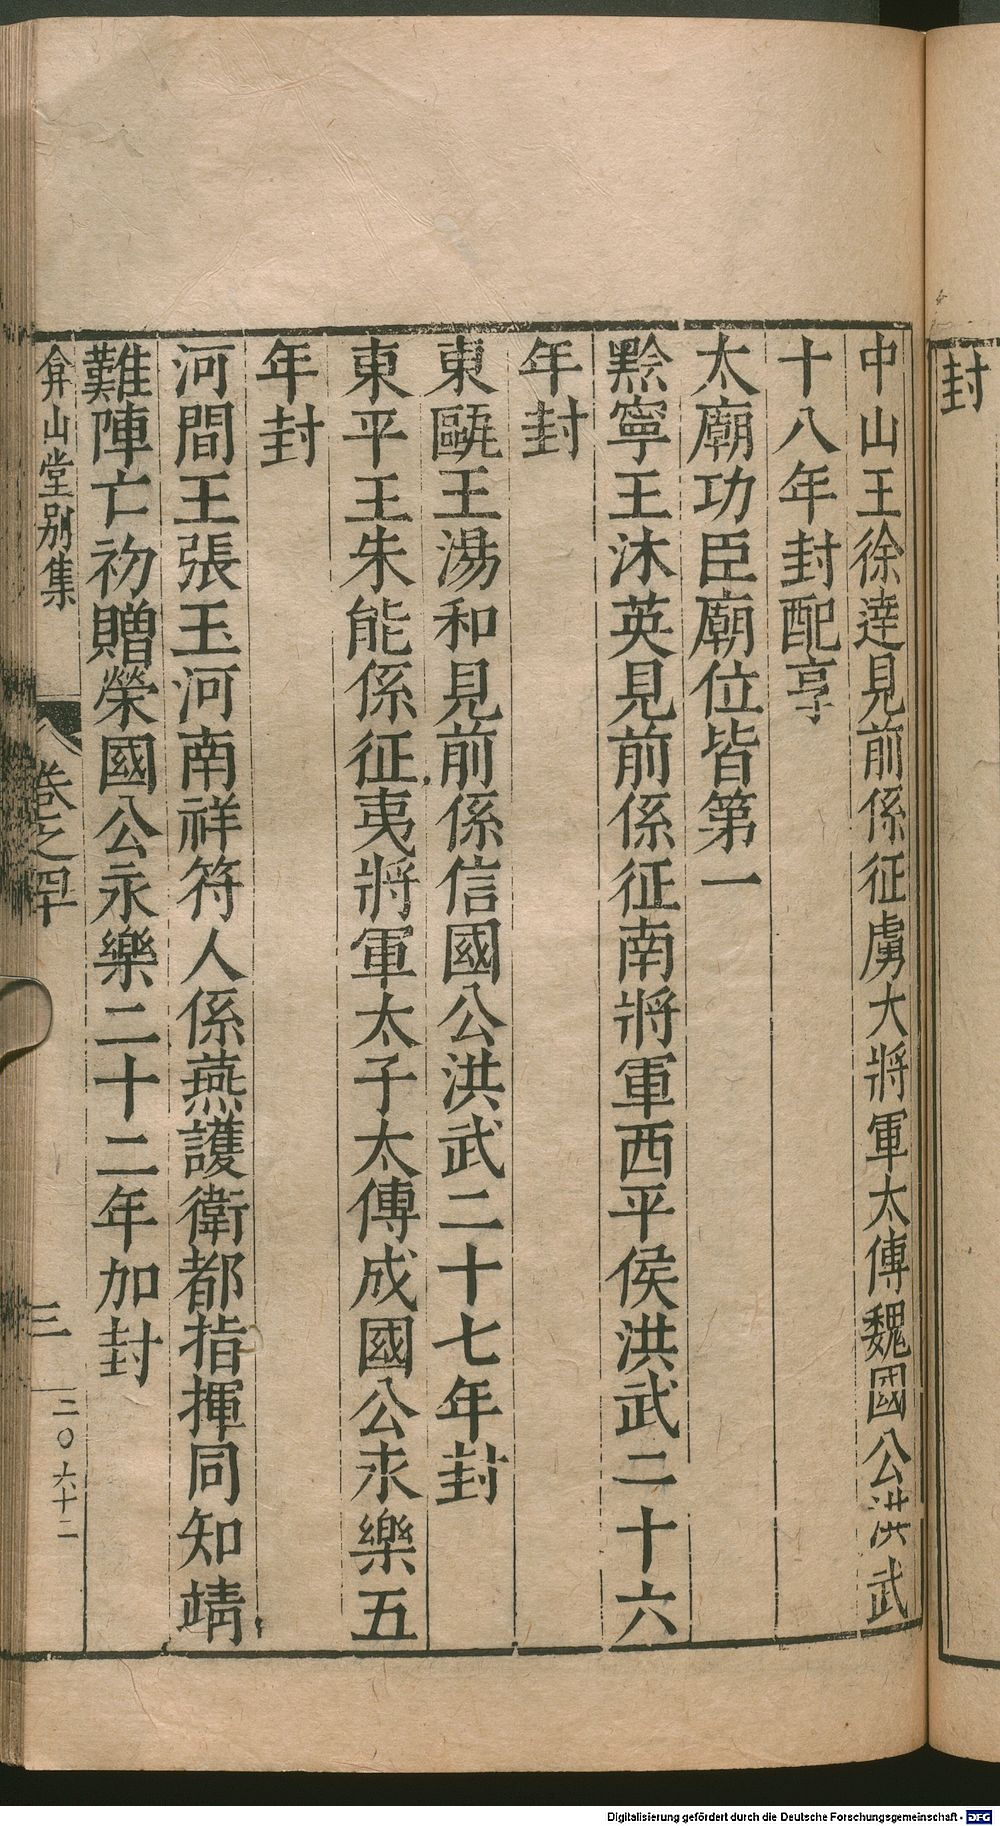 封
中山王徐達見前係征虜大將軍太傅魏國公洪武
十八年封配享
太廟功臣廟位皆第一
黔寧王沐英見前係征南將軍西平侯洪武二十六
年封
東甌王湯和見前係信國公洪武二十七年封
東平王朱能係征夷將軍太子太傅成國公永樂五
年封
河間王張玉河南祥符人係燕護衛都指揮同知靖
難陣亡初贈榮國公永樂二十二年加封
弇山堂别集
卷之四十
三
二〇六十二
Digitalisierung gefördert durch die Deutsche Forschungsgemeinschaft - DFG